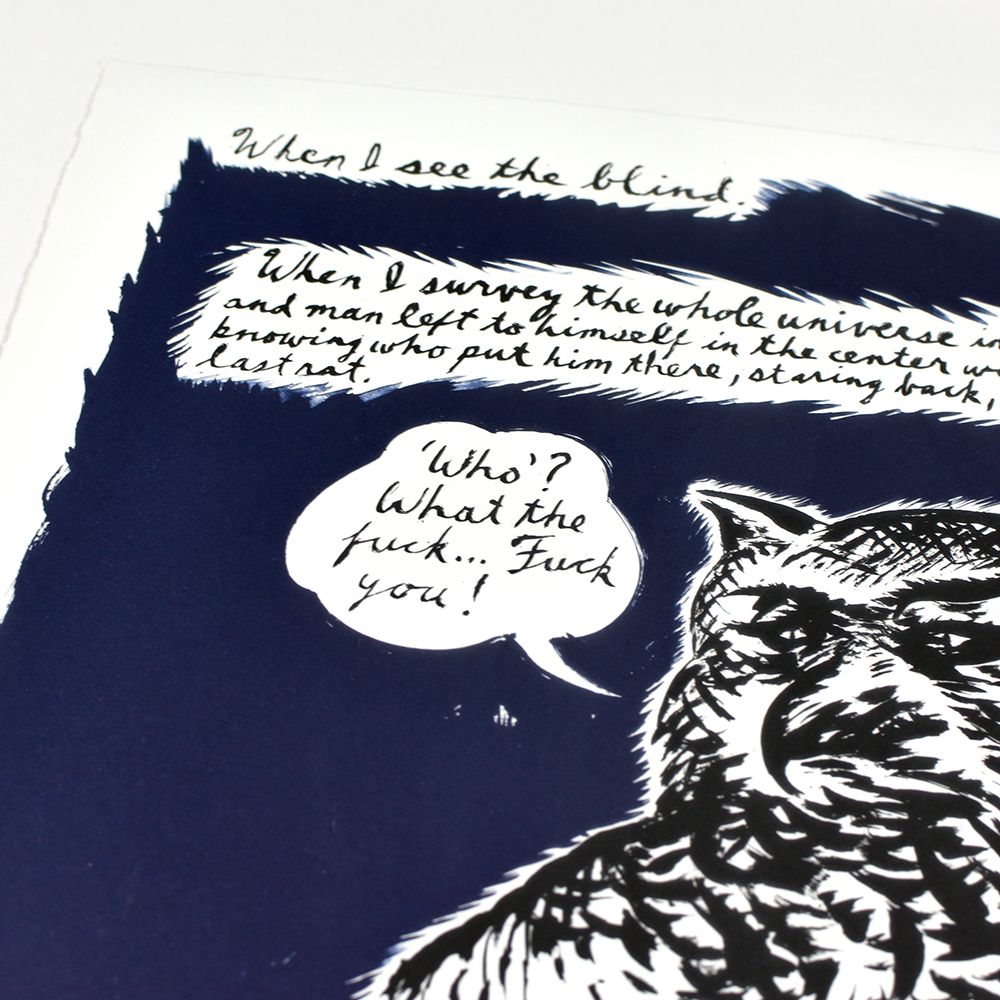 When I see the blind.
When I survey the whole universe in
and man left to himself in the center
knowing who put him there, staring back,
last rat.
'Who'?
What the
fuck... Fuck
you!